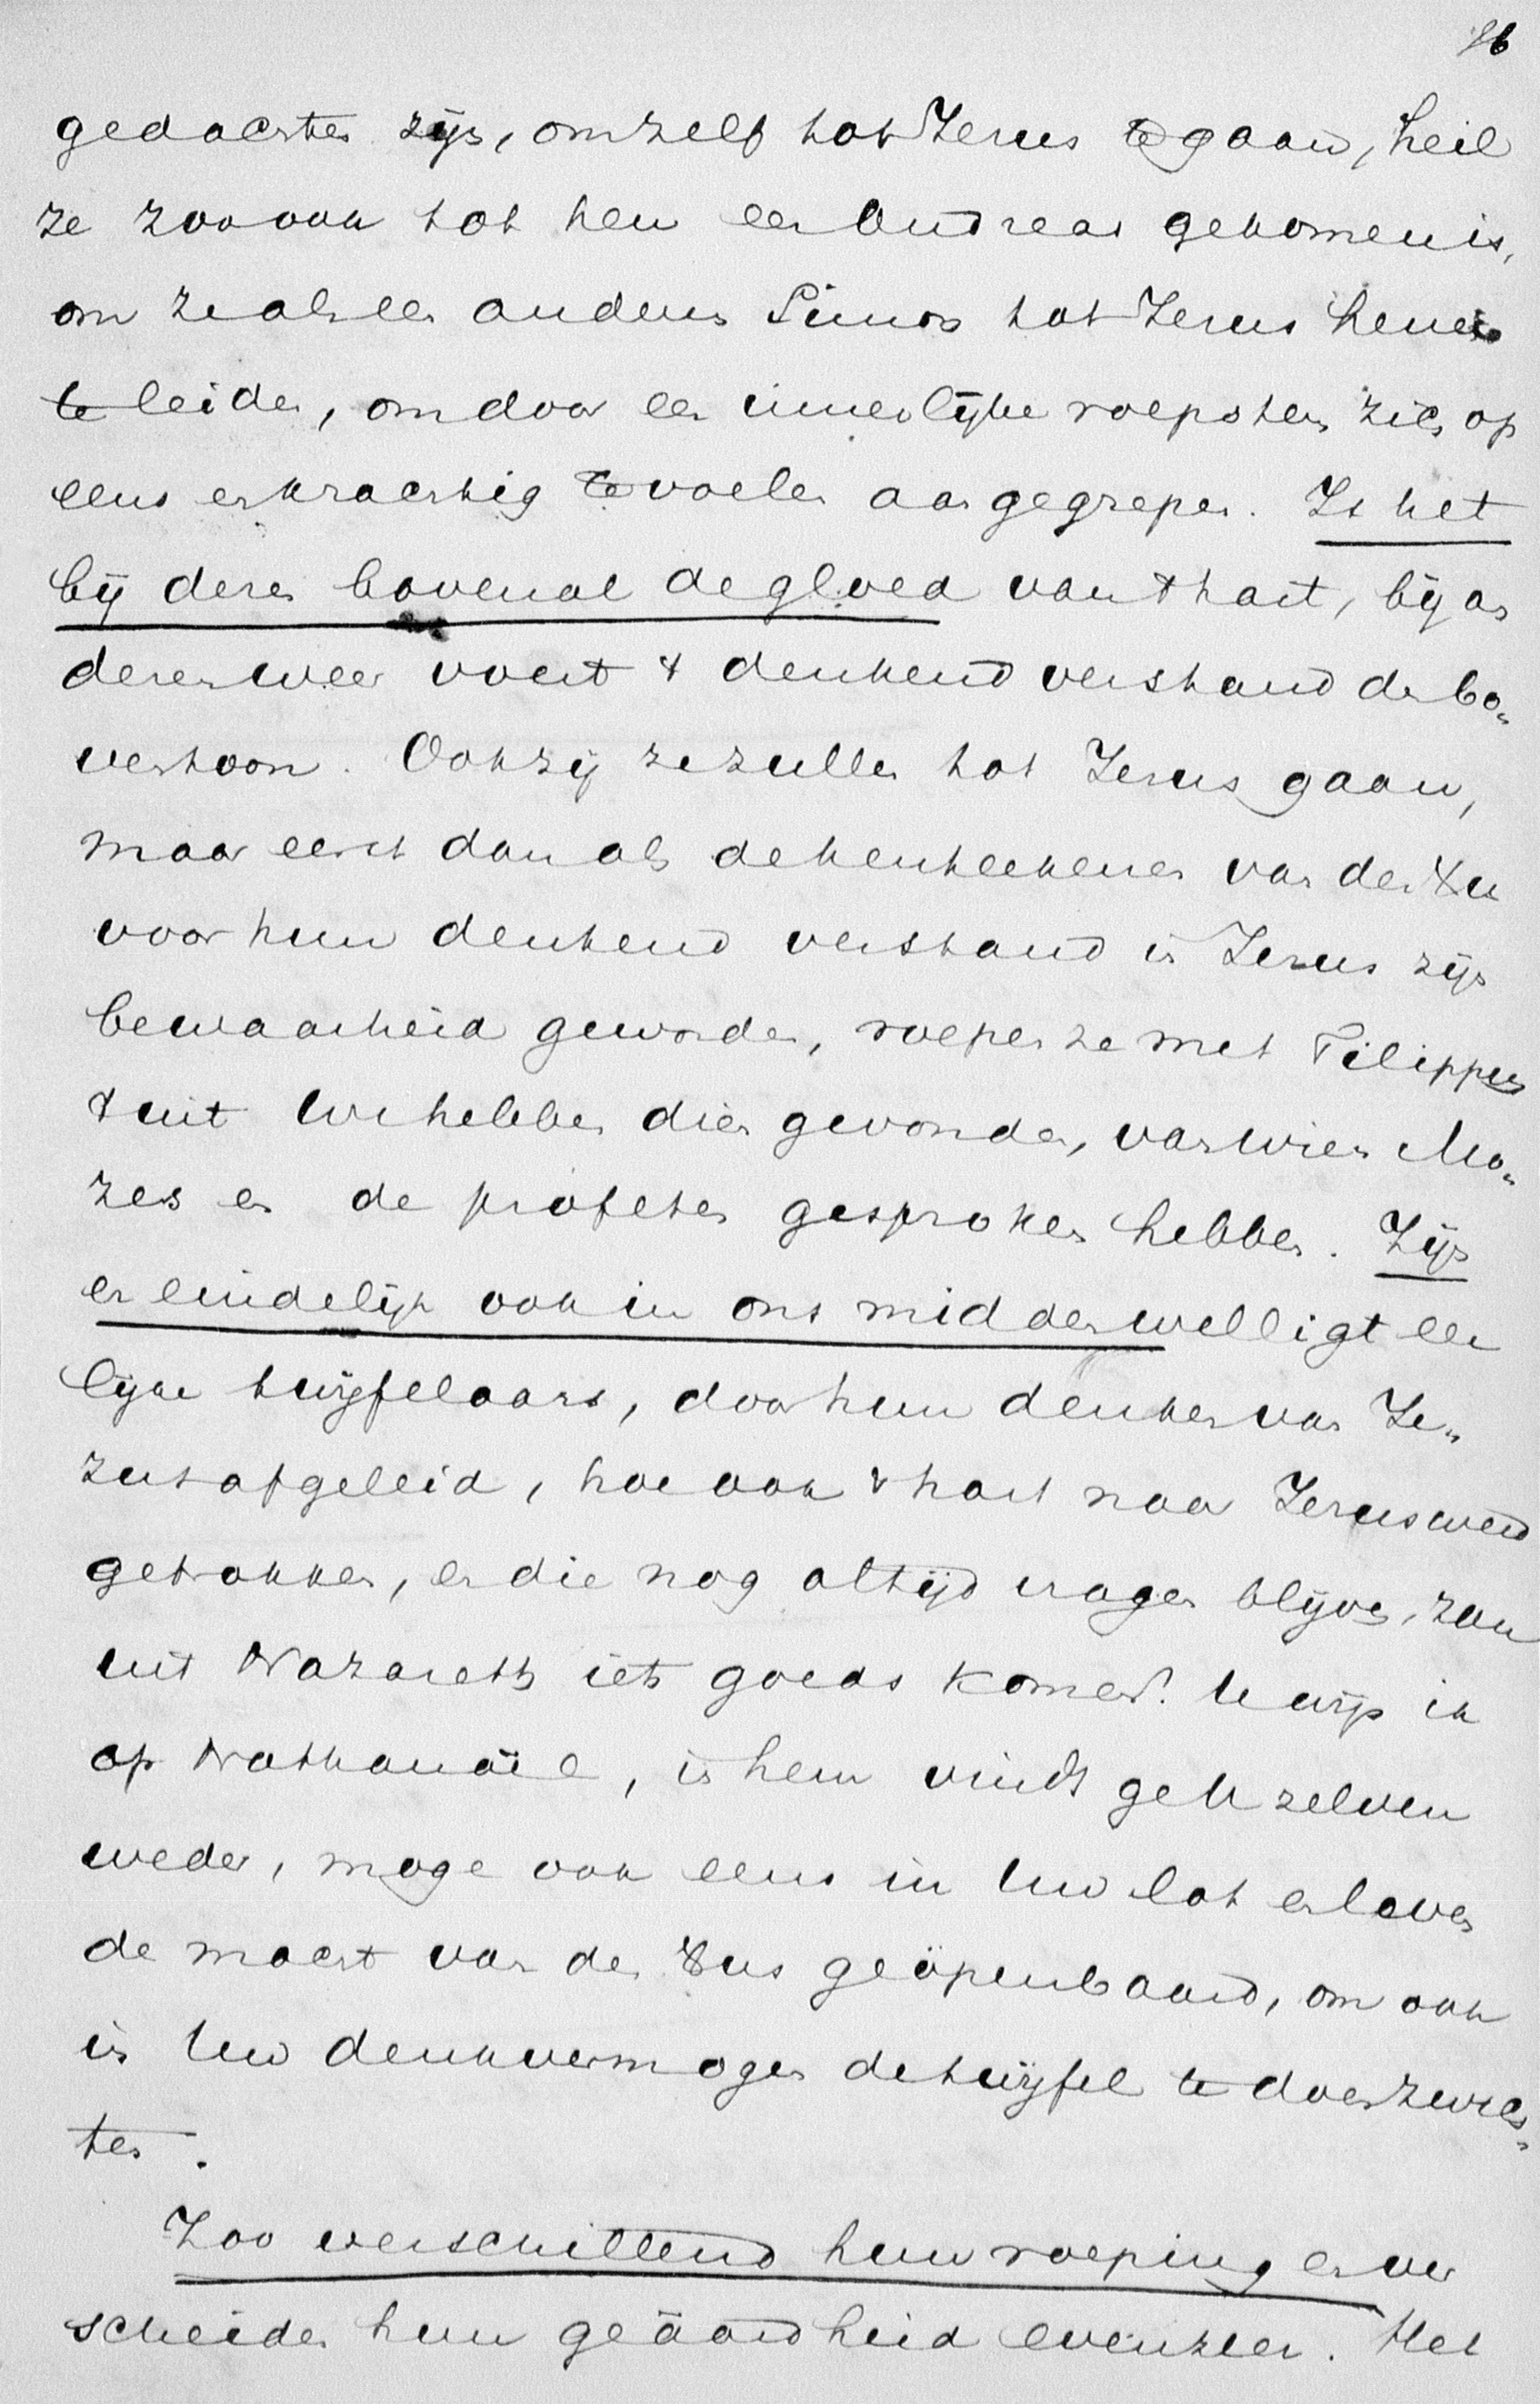 86
gedachten zijn, om zelf tot Jezus te gaan, heil
ze zoo ook tot hen een Andreas gekomen is,
om ze als een anderen Simon tot Jezus henen
te leiden, om door een innerlijke roepstem zich op
eens er krachtig te voelen aangegrepen. Is het
bij dezen bovenal de gloed van 't hart, bij an
deren weer voert 't denkend verstand den bo„
ventoon. Ook zij ze zullen tot Jezus gaan,
maar eerst dan als de kenteekenen van den Xu
voor hun denkend verstand in Jezus zijn
bewaarheid geworden, roepen ze met Filippus
't uit We hebben dien gevonden, van wien Mo„
zes en de profeten gesproken hebben. Zijn
er eindelijk ook in ons midden welligt eer
lijke twijfelaars, door hun denken van Je„
zus afgeleid, hoe ook 't hart naar Jezus werd
getrokken, en die nog altijd vragen blijven, zou
uit Nazareth iets goeds komen? U wijs ik
op Nathanaël, in hem vindt ge U zelven
weder, moge ook eens in Uw lot en leven
de macht van den Xus geöpenbaard, om ook
in Uw denkvermogen de twijfel te doen zwich„
ten.
Zoo verschillend hun roeping en ver
scheiden hun geäardheid evenzeer. Het